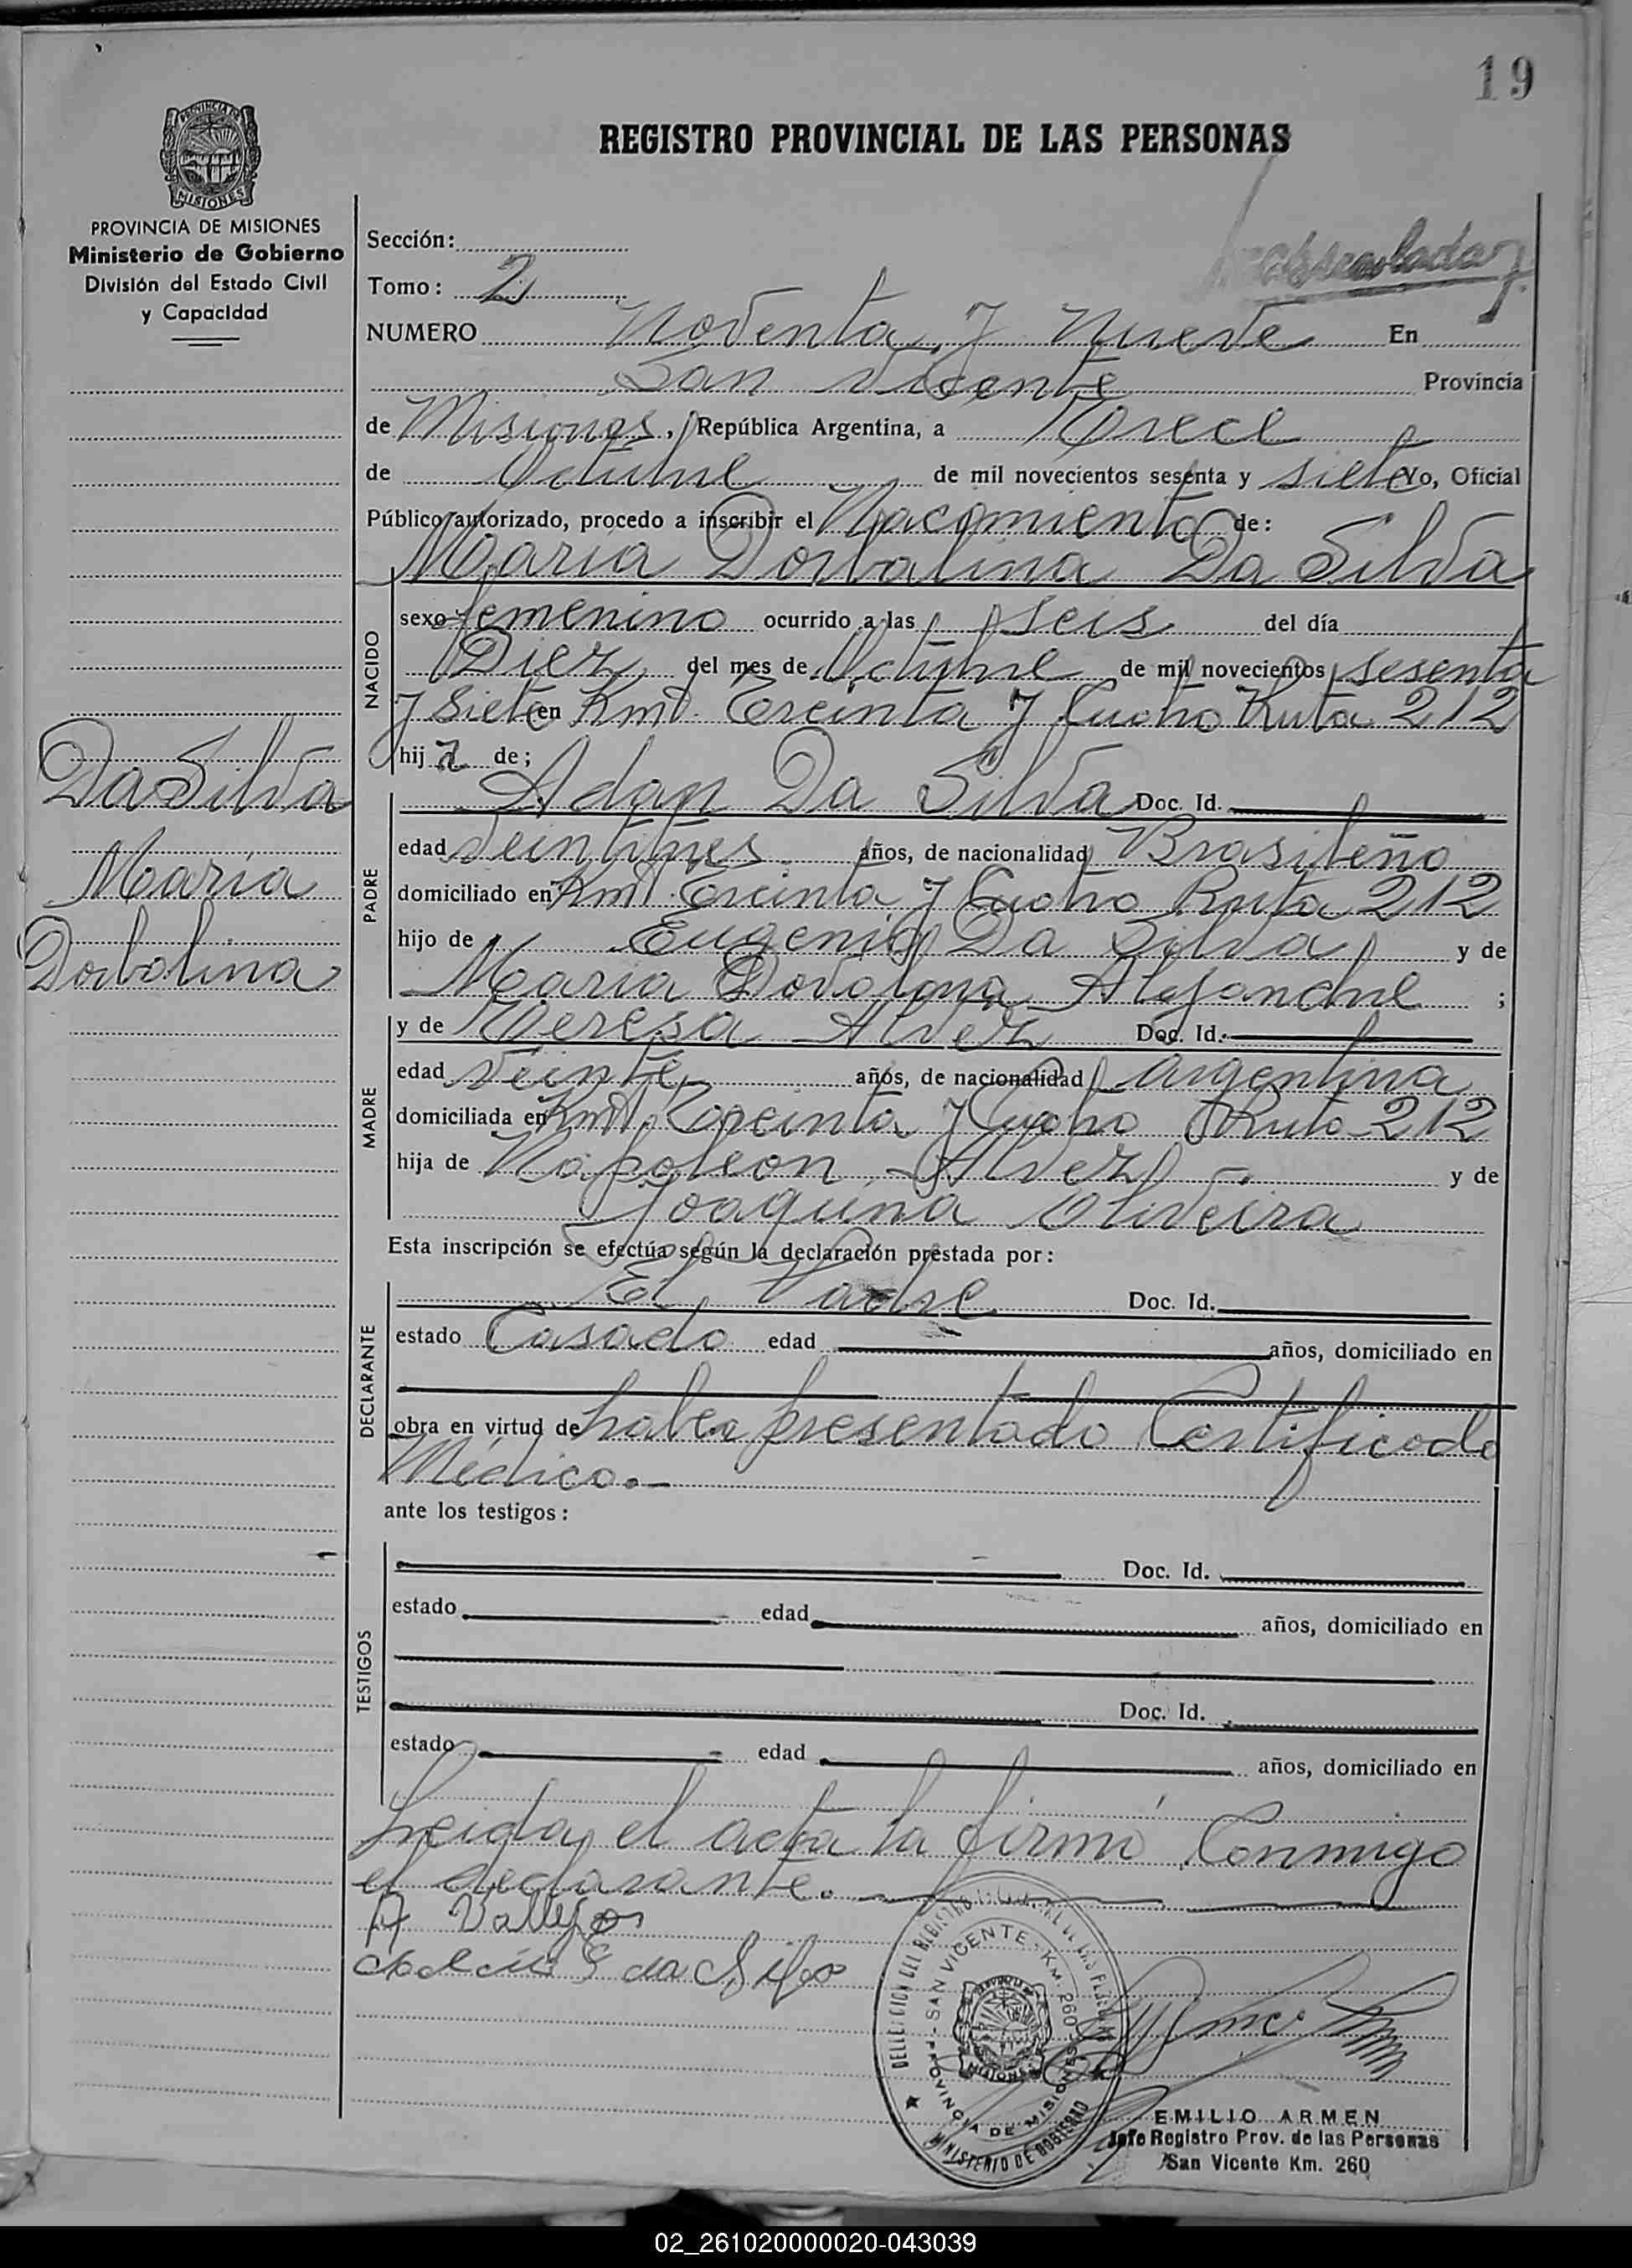 19
PROVINCIA DE
MISIONES
REGISTRO PROVINCIAL DE LAS PERSONAS
PROVINCIA DE MISIONES
Ministerio de Gobierno
División del Estado Civil
y Capacidad
Sección:
Tomo: 2
NUMERO Noventa y Nueve En
San Vicente Provincia
de Misiones, República Argentina, a Trece
de Octubre de mil novecientos sesenta y siete Yo, Oficial
Público autorizado, procedo a inscribir el Nacimiento de:
Maria Dorbalina Da Silva
NACIDO
sexo femenino ocurrido a las seis del día
Diez del mes de Octubre de mil novecientos sesenta
y Siete en Kmt. Treinta y Cuatro Ruta 212
hija de;
Da Silva
Maria
Dorbalina
PADRE
Adan Da Silva Doc. Id.
edad Veintitres años, de nacionalidad Brasileño
domiciliado en Kmt. Treinta y Cuatro Ruta 212
hijo de Eugenio Da Silva y de
Maria Alejandre ;
MADRE
y de Teresa Alvez Doc. Id.
edad Veinte años, de nacionalidad argentina
domiciliada en Kmt. Treinta y Cuatro Ruta 212
hija de Napoleon Alvez y de
Joaquina Oliveira
Esta inscripción se efectúa según la declaración prestada por:
DECLARANTE
El Padre Doc. Id.
estado Casado edad años, domiciliado en
obra en virtud de haber presentado Certificado
Médico.-
ante los testigos:
TESTIGOS
Doc. Id.
estado edad años, domiciliado en
Doc. Id.
estado edad años, domiciliado en
Leida el acta la firmó Conmigo
el declarante.
A Vallejos
da Silva
DELEGACION DEL REGISTRO PROVINCIAL DE LAS PERSONAS
SAN VICENTE - KM. 260
PROVINCIA DE MISIONES
MINISTERIO DE GOBIERNO
MISIONES
EMILIO ARMEN
Jefe Registro Prov. de las Personas
San Vicente Km. 260
02_261020000020-043039